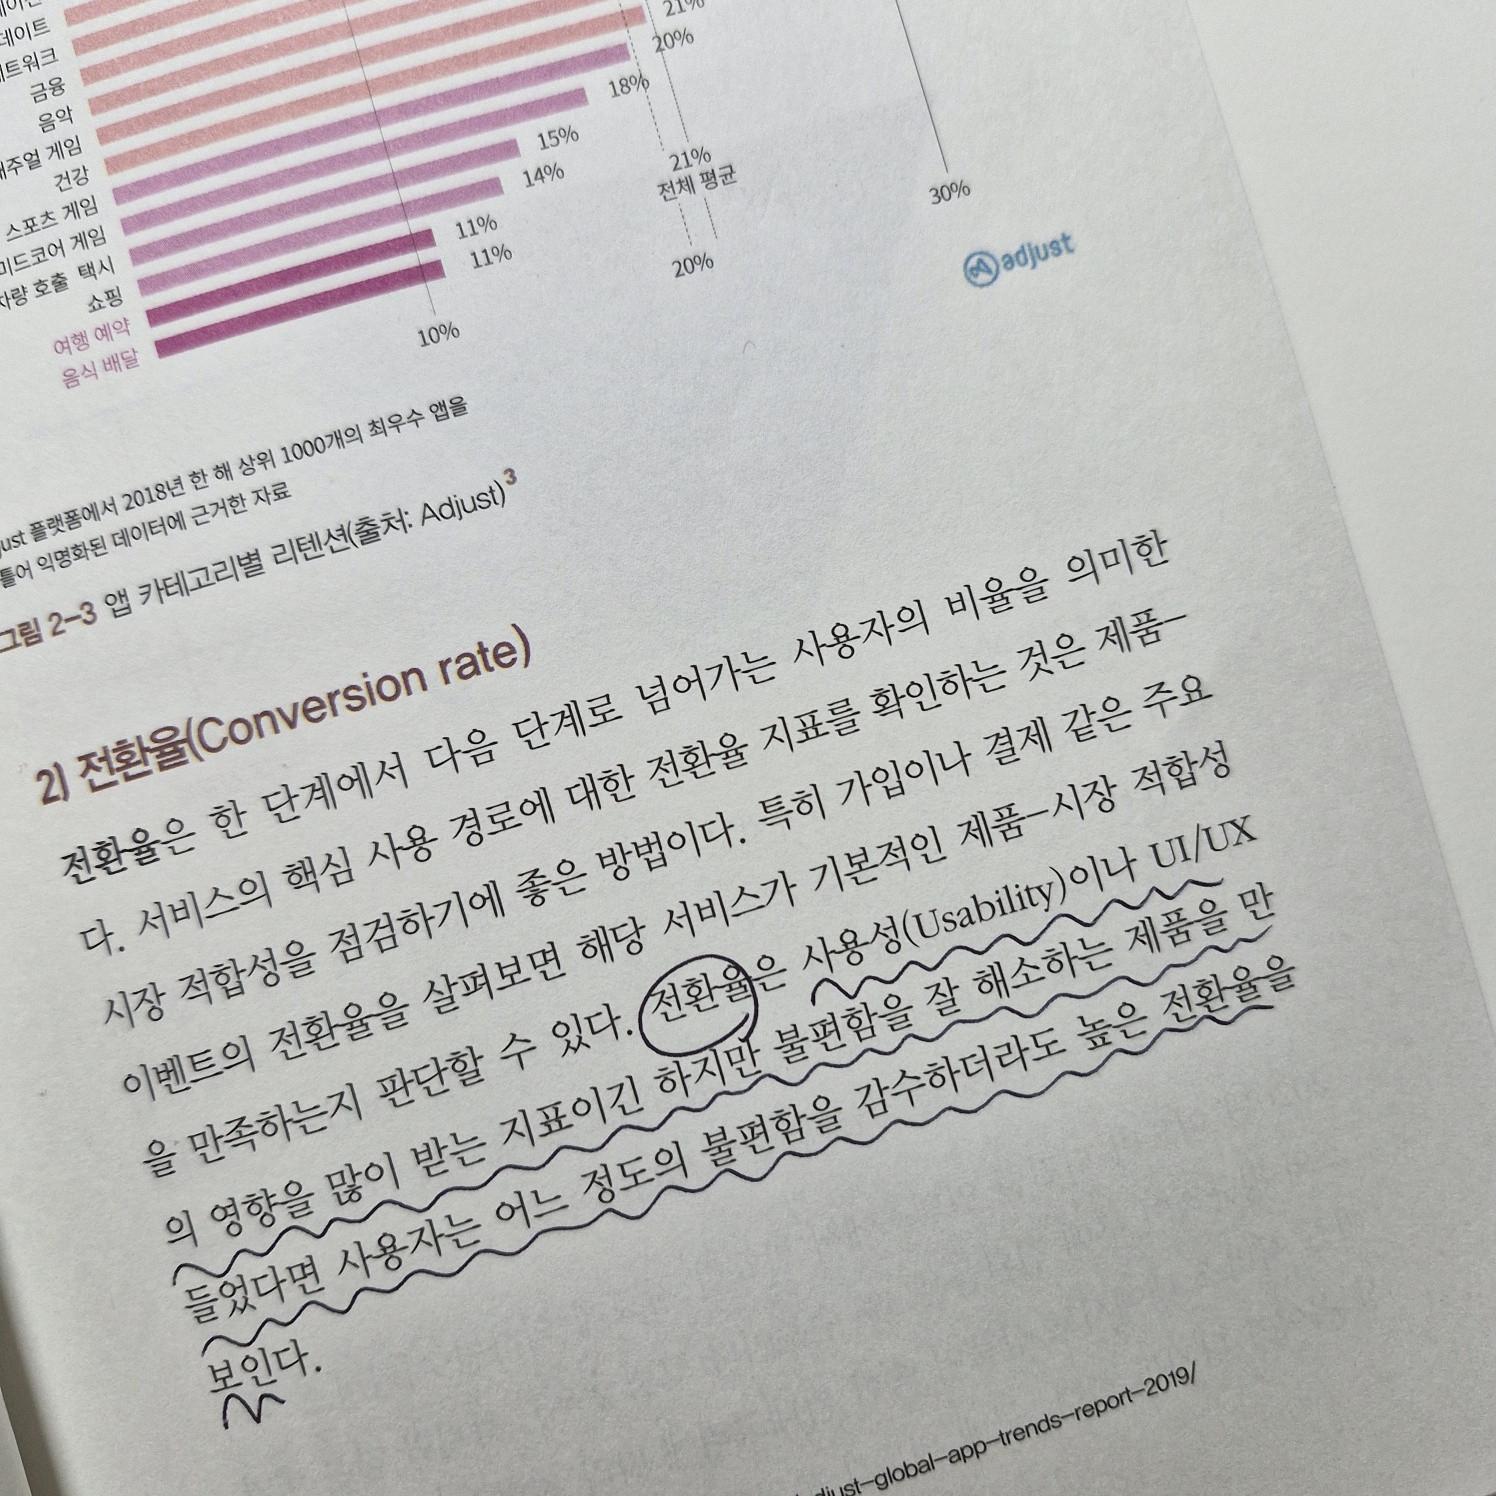 데이트
금융
음악
건강
스포츠 게임
미드코어 게임
호출 택시
쇼핑
여행 예약
음식 배달
21%
20%
18%
15%
14%
11%
11%
21%
전체 평균
10%
20%
30%
adjust
플랫폼에서 2018년 한 해 상위 1000개의 최우수 앱을
익명화된 데이터에 근거한 자료
그림 2-3 앱 카테고리별 리텐션(출처: Adjust)3
2) 전환율(Conversion rate)
전환율은 한 단계에서 다음 단계로 넘어가는 사용자의 비율을 의미한
다. 서비스의 핵심 사용 경로에 대한 전환율 지표를 확인하는 것은 제품-
시장 적합성을 점검하기에 좋은 방법이다. 특히 가입이나 결제 같은 주요
이벤트의 전환율을 살펴보면 해당 서비스가 기본적인 제품-시장 적합성
을 만족하는지 판단할 수 있다. 전환율은 사용성(Usability)이나 UI/UX
의 영향을 많이 받는 지표이긴 하지만 불편함을 잘 해소하는 제품을 만
들었다면 사용자는 어느 정도의 불편함을 감수하더라도 높은 전환율을
보인다.
adjust-global-app-trends-report-2019/